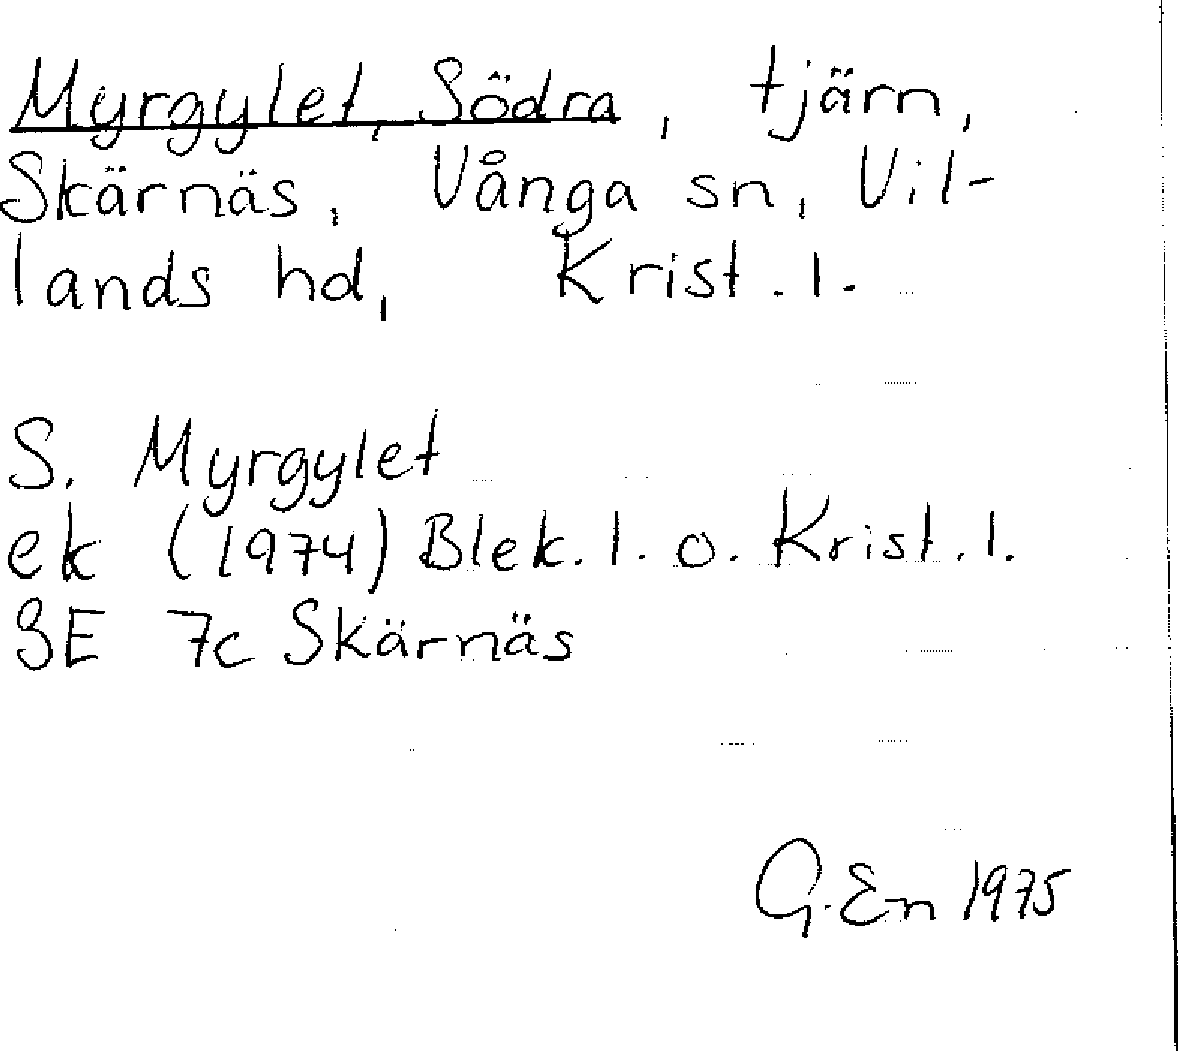 Myrgylet, Södra, tjärn,
Skärnäs, Vånga sn, Vil-
lands hd, Krist. l.
S. Myrgylet
ek (1974) Blek. l. o. Krist. l.
3E 7c Skärnäs
G. En 1975